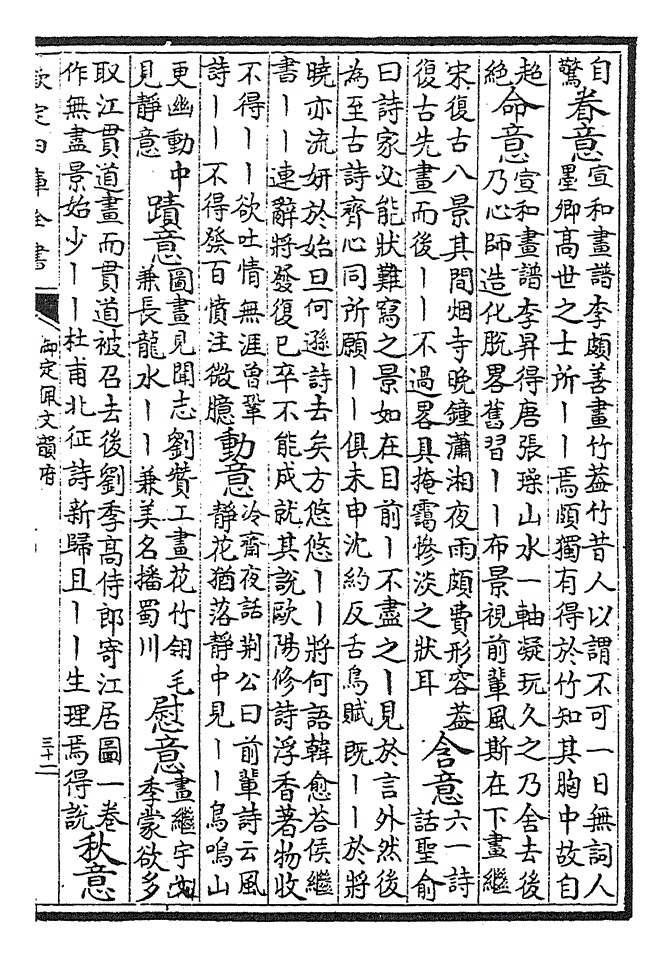 自
驚
眷意
宣和畫譜李頗善畫竹葢竹昔人以謂不可一日無詞人
墨卿髙世之士所丨丨焉頗獨有得於竹知其胸中故自
超
絶
命意
宣和畫譜李昇得唐張璪山水一軸凝玩久之乃舍去後
乃心師造化脱畧舊習丨丨布景視前輩風斯在下畫繼
宋復古八景其間烟寺晚鐘瀟湘夜雨頗費形容葢
復古先畫而後丨丨不過畧具掩靄慘淡之狀耳
含意
六一詩
話聖俞
曰詩家必能狀難寫之景如在目前丨不盡之丨見於言外然後
為至古詩齊心同所願丨丨俱未申沈約反舌鳥賦既丨丨於將
曉亦流妍於始旦何遜詩去矣方悠悠丨丨將何語韓愈荅侯繼
書丨丨連辭將發復已卒不能成就其説歐陽修詩浮香著物收
不得丨丨欲吐情無涯曾鞏
詩丨丨不得發百憤注微臆
動意
冷齋夜話荆公曰前輩詩云風
静花猶落静中見丨丨鳥鳴山
更幽動中
見静意
蹟意
圖畫見聞志劉贊工畫花竹翎毛
兼長龍水丨丨兼美名播蜀川
慰意
畫繼宇文
季蒙欲多
取江貫道畫而貫道被召去後劉季髙侍郎寄江居圖一卷
作無盡景始少丨丨杜甫北征詩新歸且丨丨生理焉得説
秋意
欽定四庫全書
御定佩文韻府
三十一